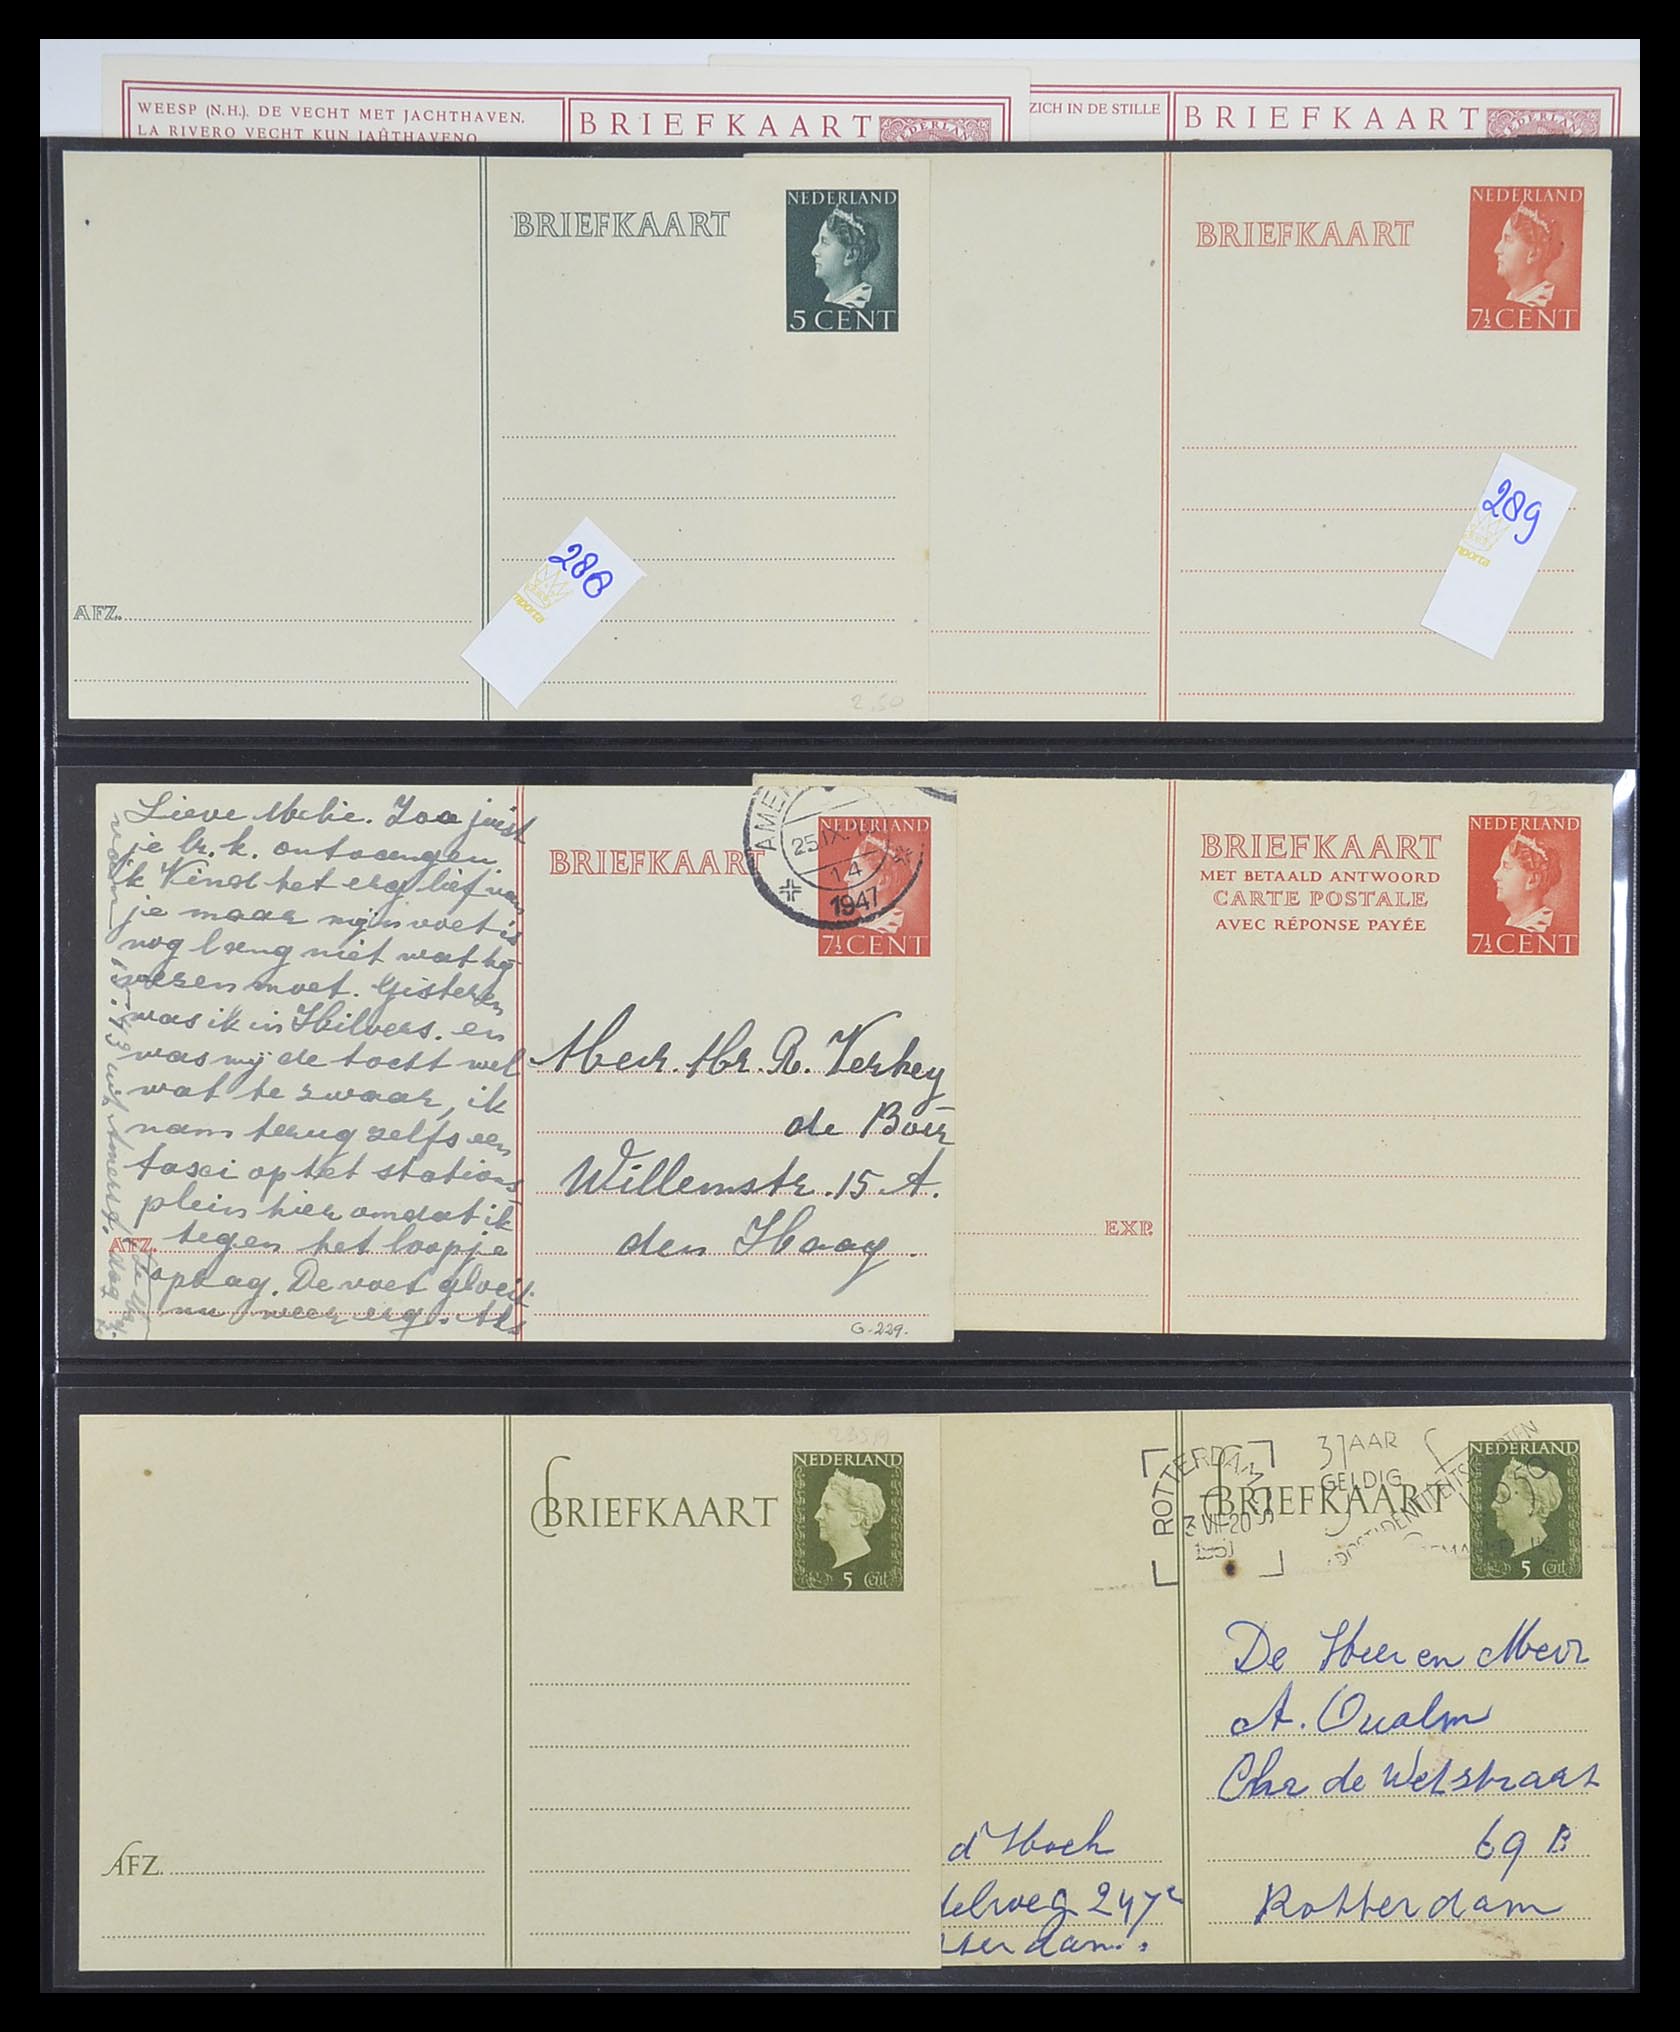 WEESP (N.H.). DE VECHT MET JACHTHAVEN.
LA RIVERO VECHT KUN JAĤTHAVENO
BRIEFKAART
NEDERLAN
ZICH IN DE STILLE
BRIEFKAART
NEDERLAN
BRIEFKAART
NEDERLAND
5 CENT
AFZ.
288
2.50
BRIEFKAART
NEDERLAND
7½ CENT
289
Lieve Melie. Zoo juist
je br. k. ontvangen
ik Vind het erg lief van
je maar mijn voet is
nog lang niet wat hij
wezen moet. Gisteren
was ik in Hilvers. en
was mij de tocht wel
wat te zwaar, ik
nam terug zelfs een
taxi op het stations
plein hier omdat ik
tegen het loopje
opzag. De voet gloeit
nu weer erg. Als
AFZ.
BRIEFKAART
NEDERLAND
7½ CENT
AMER
25 IX
14
1947
Mevr. Mr. R. Verhey
de Boer
Willemstr. 15 A.
den Haag.
G-229.
BRIEFKAART
MET BETAALD ANTWOORD
CARTE POSTALE
AVEC RÉPONSE PAYÉE
NEDERLAND
7½ CENT
EXP.
235A
BRIEFKAART
NEDERLAND
5 Cent
AFZ.
ROTTERDAM
VII-20
1951
3 JAAR
GELDIG
BRIEFKAART
NEDERLAND
5 Cent
De Heer en Mevr
A. Qualm
Chr de Wetstraat
69 B
Rotterdam
d' Hoek
elweg 247c
terdam.